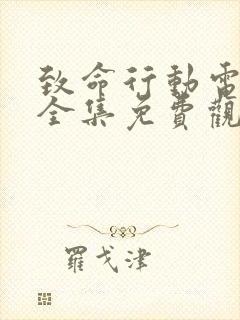 致命行動電
全集免費觀
羅戈津